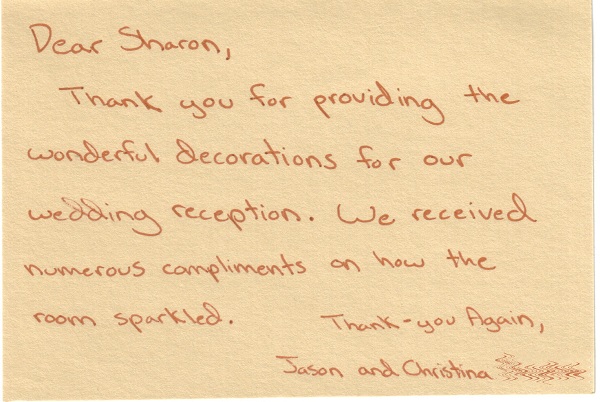 Dear Sharon,
Thank you for providing the
wonderful decorations for our
wedding reception. We received
numerous compliments on how the
room sparkled.
Thank-you Again,
Jason and Christina